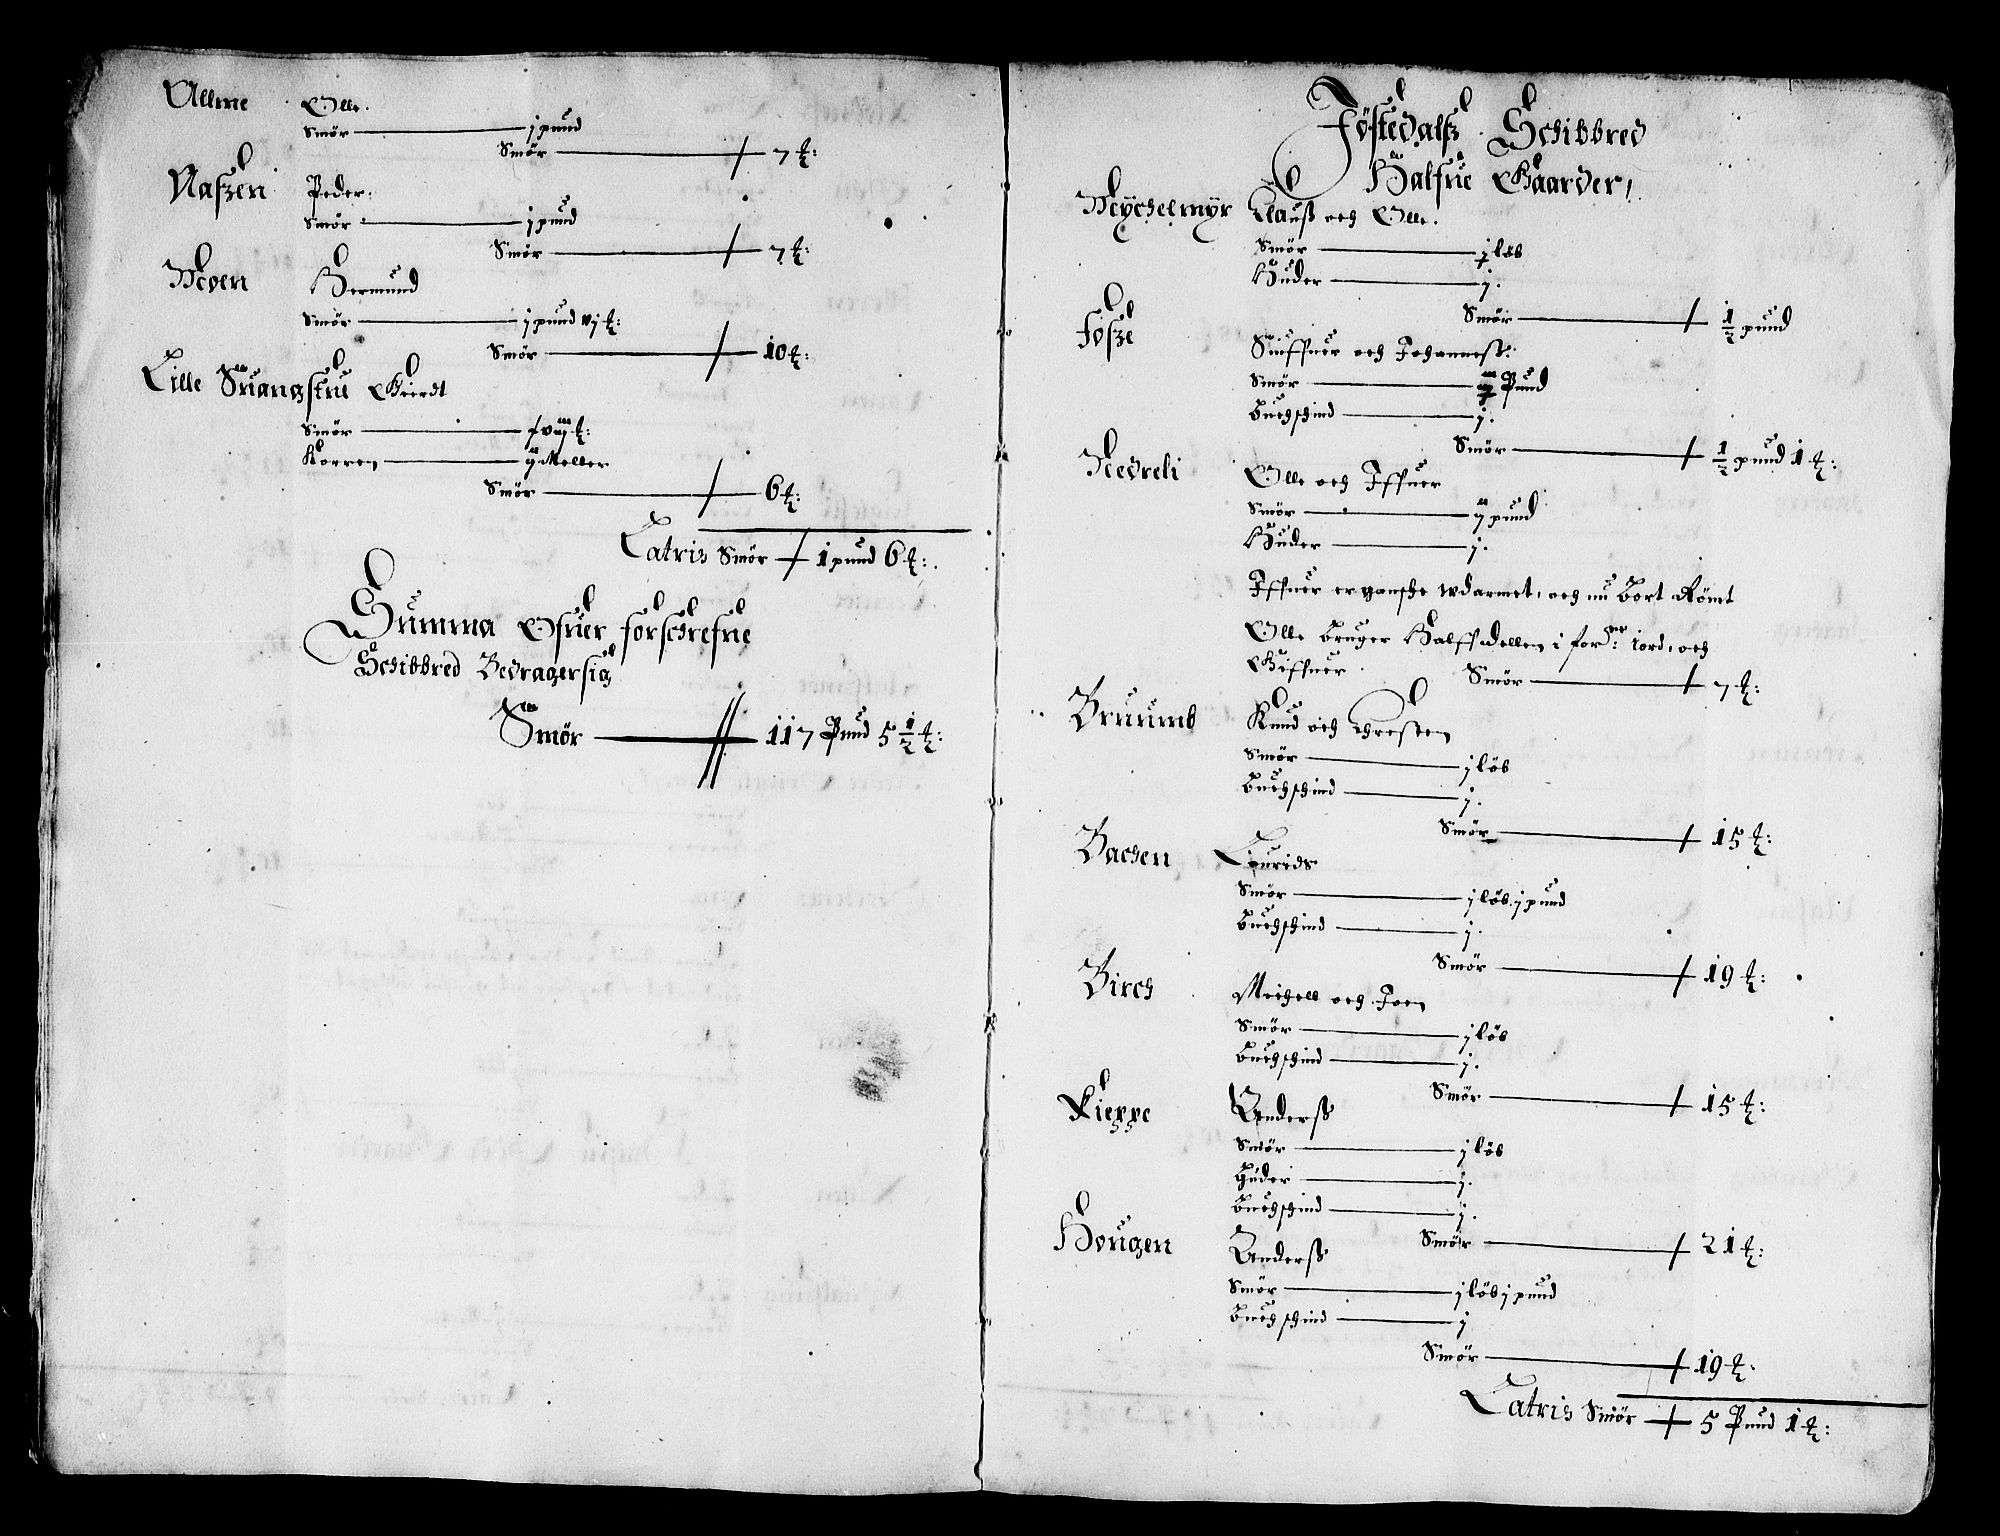 Allme Olle.
Smör — j pund
Smör — 7 ℔:
Nafzen Peder.
Smör — j pund
Smör — 7 ℔:
Moen Hermund
Smör — j pund vj ℔:
Smör — 10 ℔:
Lille Suangstru Gierdt
Smör —
Korren — ij Meller
Smör — 6 ℔:
Latris Smör — 1 pund 6 ℔:
Summa Ofuer forschrefne
Schibbred Bedrager sig
Smör — 117 Pund 5 ½ ℔:
Jöstedalss Schibbred
Halfue Gaarder
Mychelmyr Clauss och Olle.
Smör — j löb
Huder — j.
Smör — ½ pund
Fosze
Siuffuer och Johanness.
Smör — Pund
Buchschind — j.
Smör — ½ pund 1 ℔:
Nedreli
Olle och Iffuer
Smör — ij pund
Huder — j.
Iffuer er gansche wdarmet, och nu Bort Römt
Olle bruger Halffdellen i for:ne iord, och
Giffuer Smör — 7 ℔:
Bruumb Knud och Chresten
Smör — j löb
Buchschind — j.
Smör — 15 ℔:
Bachen Laurids
Smör — j löb j pund
Buchschind — j.
Smör — 19 ℔:
Birch
Michell och Joen
Smör — j löb
Buchschind — j.
Smör — 15 ℔:
Kieppe Anderss
Smör — j löb
Huder — j.
Buchschind — j.
Smör — 21 ℔:
Hougen Anderss
Smör — j löb j pund
Buchschind — j
Smör — 19 ℔:
Latris Smör — 5 Pund 1 ℔: